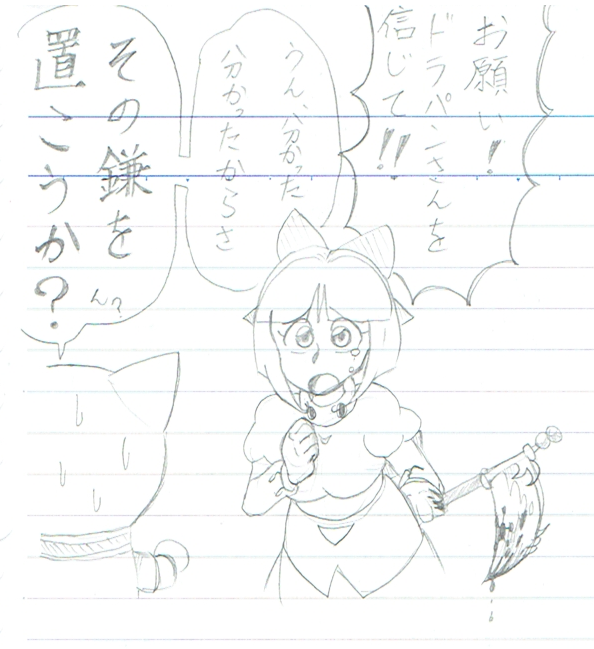 お願い!
ドラパンさんを
信じて!!
うん、分かった
分かったからさ
その鎌を
置こうか?
ん?